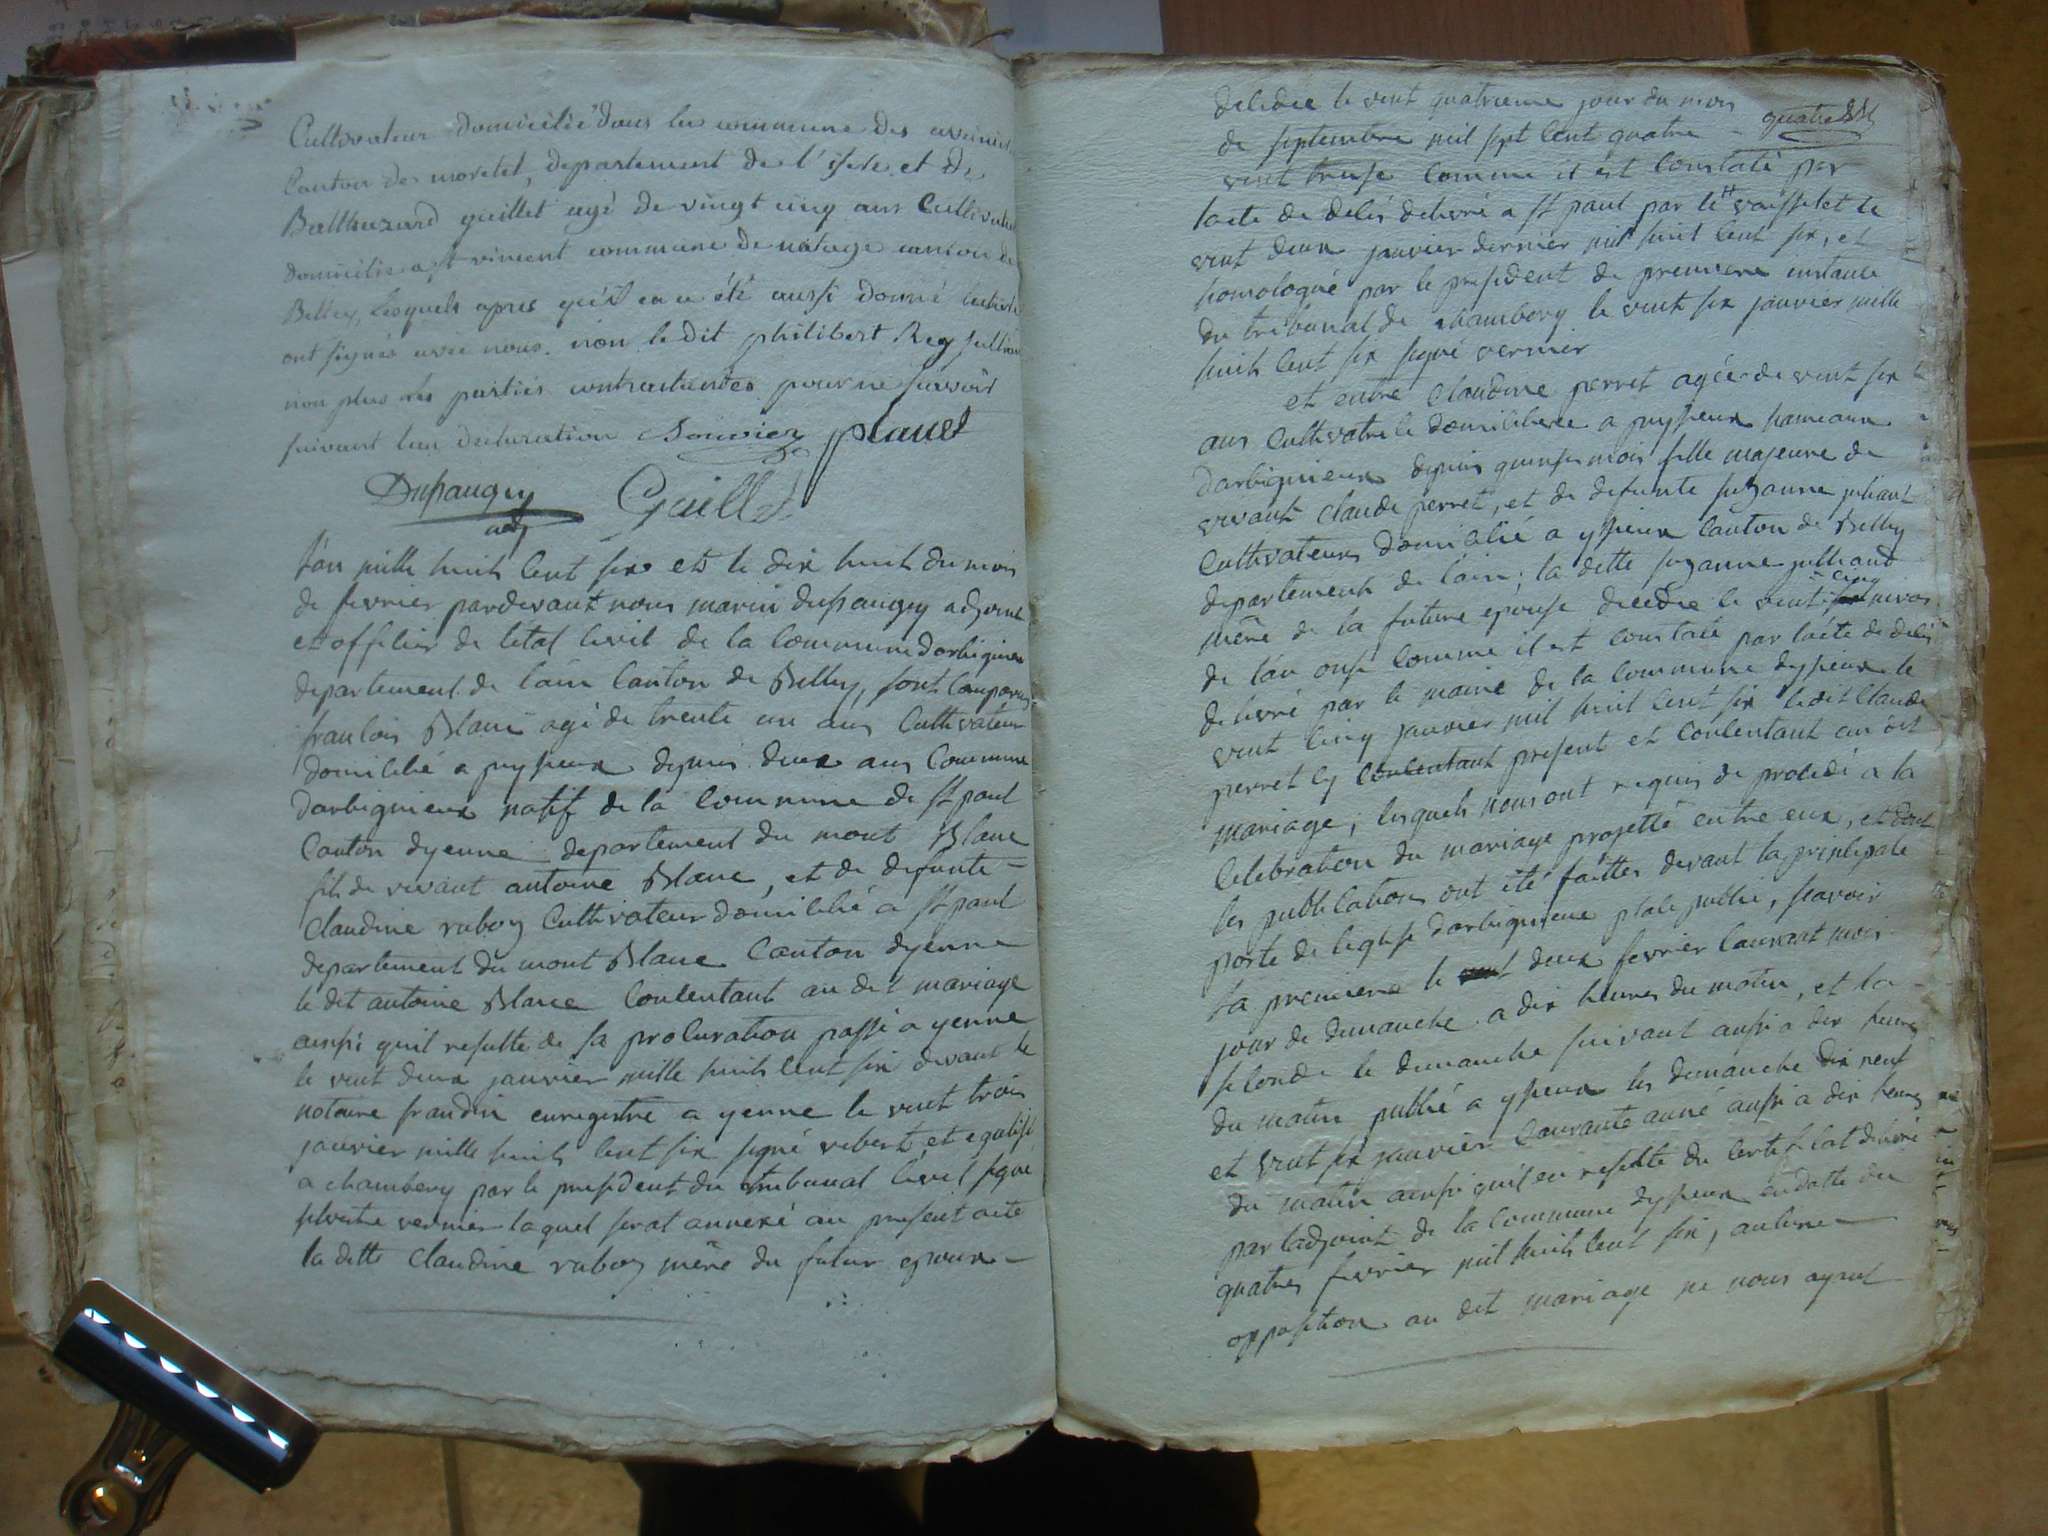 Cultivateur domicilié dans la commune des avenieres
Canton de morelel, departement de l'isere et de
Balthazard guillet agé de vingt cinq ans Cultivateur
domicilié a st vincent commune de natage canton de
Belley, lesquels apres qu'il en a été aussi donné lecture
ont signés avec nous. non le dit philibert Rey jullian
non plus les parties contractantes pour ne savoir
suivant leur declaration Bouvier planet
Dupaugey Guillet
adj
l'an mille huit cent six et le dix huit du mois
de fevrier pardevant nous marin dupaugey adjoint
et officier de letat civil de la Commune darbignieu
departement de l'ain Canton de Belley, sont comparus
francois Blanc agé de trente un ans Cultivateur
domicilié a puysieux depuis deux ans Commune
darbignieux natif de la Commune de st paul
Canton dyenne departement du mont Blanc
fils de vivant antoine Blanc, et de defunte
Claudine ruboy Cultivateur domicilié a st paul
departement du mont Blanc Canton dyenne
le dit antoine Blanc Consentant au dit mariage
ainsi quil resulte de sa procuration passé a yenne
le vint deux janvier mille huit cent six devant le
notaire frandin enregistré a yenne le vint trois
janvier mille huit cent six signé vibert, et egalisé
a chambery par le president du tribunal civil signé
silvestre vernier laquel serat annexé au present acte
la ditte Claudine ruboy mère du futur epoux
decedée le vint quatrieme jour du mois
de septembre mil sept cent quatre quatre
vint treise comme il est constaté par
lacte de deces delivré a st paul par le sr vaisselet le
vint deux janvier dernier mil huit cent six, et
homologué par le president de premiere instance
du tribunal de chambery le vint six janvier mille
huit cent six signé vernier
et entre Claudine perret agée de vint six
ans Cultivatrice domiciliée a puysieux hameaux
darbignieux depuis quinse mois fille majeure de
vivant claude perret, et de defunte suzanne juliant
Cultivateurs domicilié a ysieux Canton de Belley
departement de l'ain; la ditte suzanne jullиand
mère de la future epouse decedée le vint cinq nivos
de l'an onse Comme il est constaté par lacte de deces
delivré par le maire de la Commune dysieux le
vint cinq janvier mil huit cent six le dit Claude
perret cy consentant present et consentant au dit
mariage; lesquels nous ont requis de procedé a la
Celebration du mariage projetté entre eux, et dont
les publications ont été faittes devant la principale
porte de leglise darbignieux place public, scavoir
la premiere le deux fevrier Courrant mois
jour de dimanche a dix heures du matin, et la
seconde le dimanche suivant aussi a dix heures
du matin publié a ysieux les dimanche dix neuf
et vint six janvier Courante anné aussi a dix heures
du matin ainsi quil en resulte du Certificat delivré
par ladjoint de la Commune dysieux en datte du
quatres fevrier mil huit cent six, aucune
opposition au dit mariage ne nous ayant